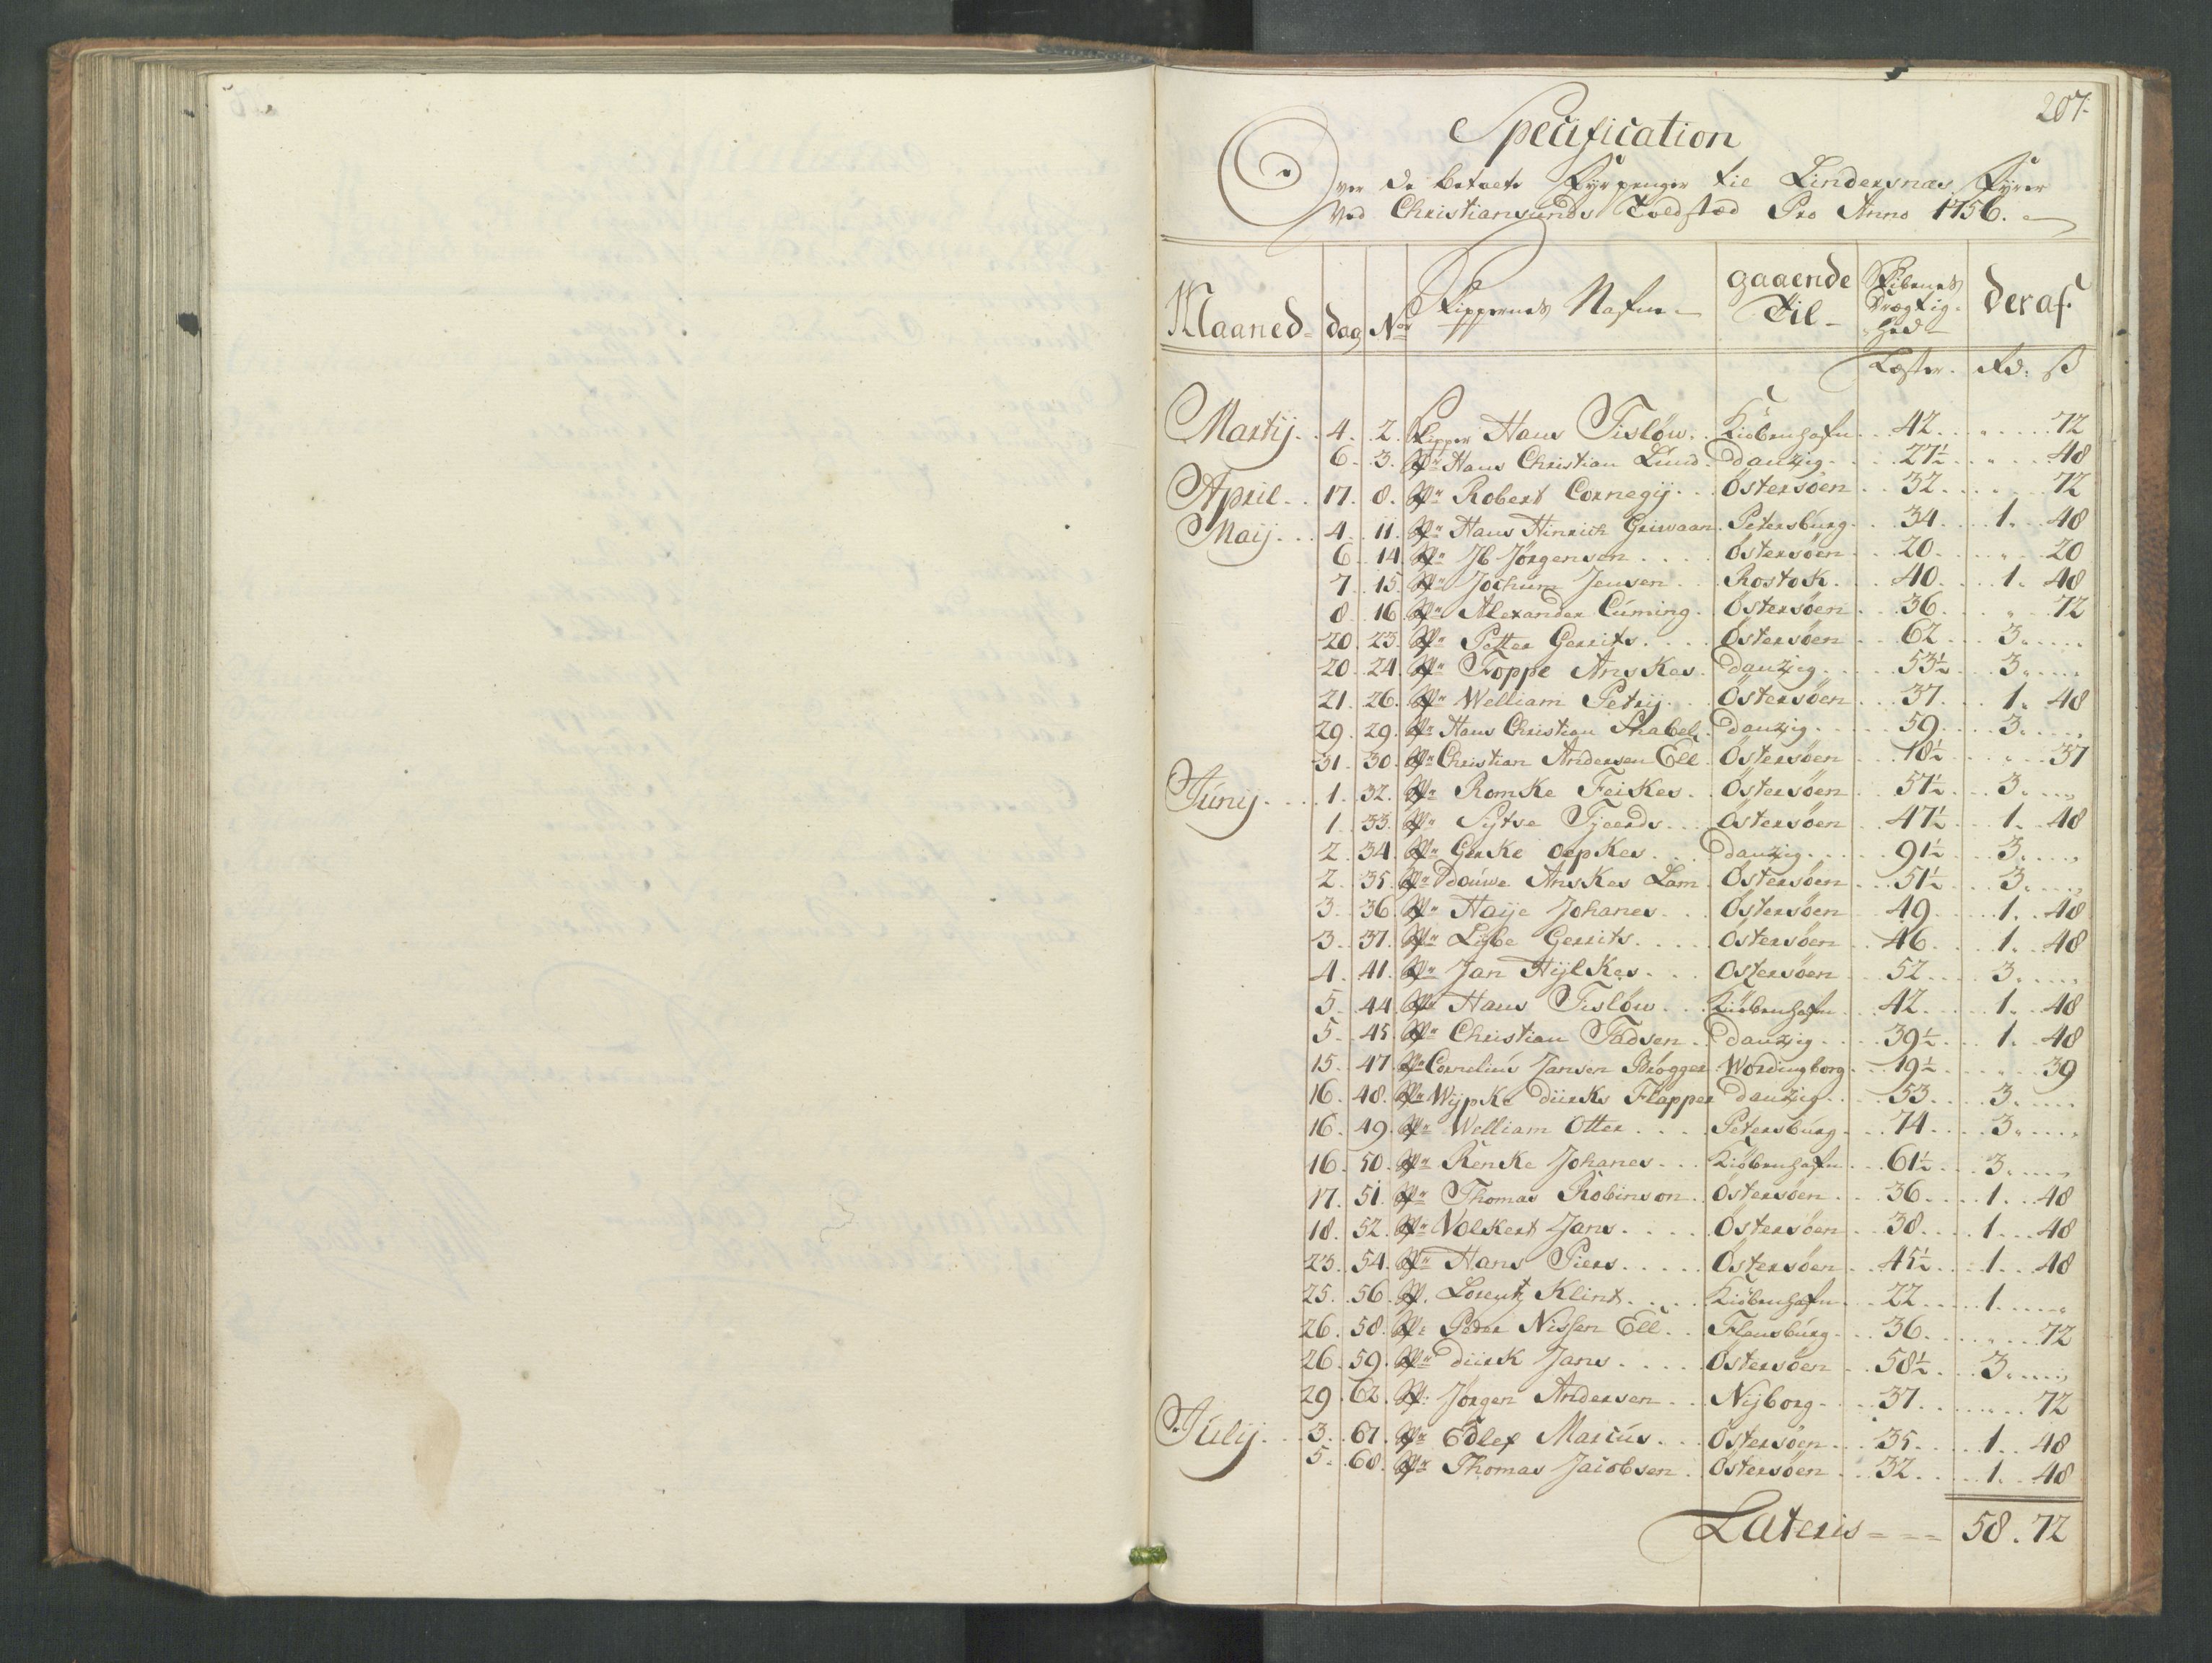 207.
Specification
Over de betalte Fyrpenger til Lindersnæs Fyrer
Ved Christiansunds Toldsted Pro Anno 1756.
Maaned dag No Skippernes Nafne gaaende Til Skibenes Drægtighed deraf
Læster. Rd. ß
Martij 4. 2. Skipper Hans Tisløw Kiöbenhafn 42 " 72
6. 3. Sr Hans Christian Lund danzig 27½ " 48
April 17. 8. Sr Robert Cornegij Östersöen 32 " 72
Maij 4. 11. Sr Hans Hinrich Griwaan Petersburg 34 1. 48
6 14. Sr Jb Jörgensen Östersöen 20 " 20
7 15. Sr Jochum Jensen Rostok 40 1. 48
8 16 Sr Alexander Cuming Östersöen 36 " 72
20 23. Sr Petter Gerrits Östersöen 62 3. "
20 24. Sr Foppe Anskes danzig 53½ 3. "
21. 26. Sr Welliam Petrij Östersöen 37 1. 48
29. 29. Sr Hans Christian Stabel danzig 59 3. "
31. 30. Sr Christian Andersen Ell Östersöen 18½ " 37
Junij 1. 32. Sr Romke Feikes Östersöen 57½ 3. "
1. 33. Sr Sijtse Tjeerds Östersöen 47½ 1. 48
2. 34. Sr Gerke Oepkes danzig 91½ 3. "
2. 35. Sr Douwe Anskes Lam Östersöen 51½ 3. "
3. 36. Sr Haije Johanes Östersöen 49 1. 48
3. 37. Sr Lijbe Gerrits Östersöen 46 1. 48
4. 41. Sr Jan Hijlkes Östersöen 52 3. "
5. 44. Sr Hans Tisløw Kiöbenhafn 42 1. 48
5. 45. Sr Christian Fadsen danzig 39½ 1. 48
15. 47 Sr Cornelius Jansen Brøgger Wordingborg 19½ " 39
16. 48. Sr Wijpke diirks Flapper danzig 53 3. "
16. 49. Sr Welliam Otter Petersburg 74 3. "
16. 50. Sr Renke Johanes Kiöbenhafn 61½ 3. "
17. 51. Sr Thomas Robinson Östersöen 36 1. 48
18. 52. Sr Volkert Jans Östersöen 38 1. 48
23. 54. Sr Hans Piers Östersöen 45½ 1. 48
25. 56. Sr. Lorentz Klint Kiöbenhafn 22 1. "
26. 58. Sr Peder Nissen Ell Flensburg 36 " 72
26. 59. Sr diirk Jans Östersöen 58½ 3. "
29. 62. Sr Jörgen Andersen Nijborg 37 " 72
Julij 3. 67. Sr Edlef Marcus Östersöen 35 1. 48
5. 68. Sr Thomas Jacobsen Östersöen 32 1. 48
Lateris 58. 72